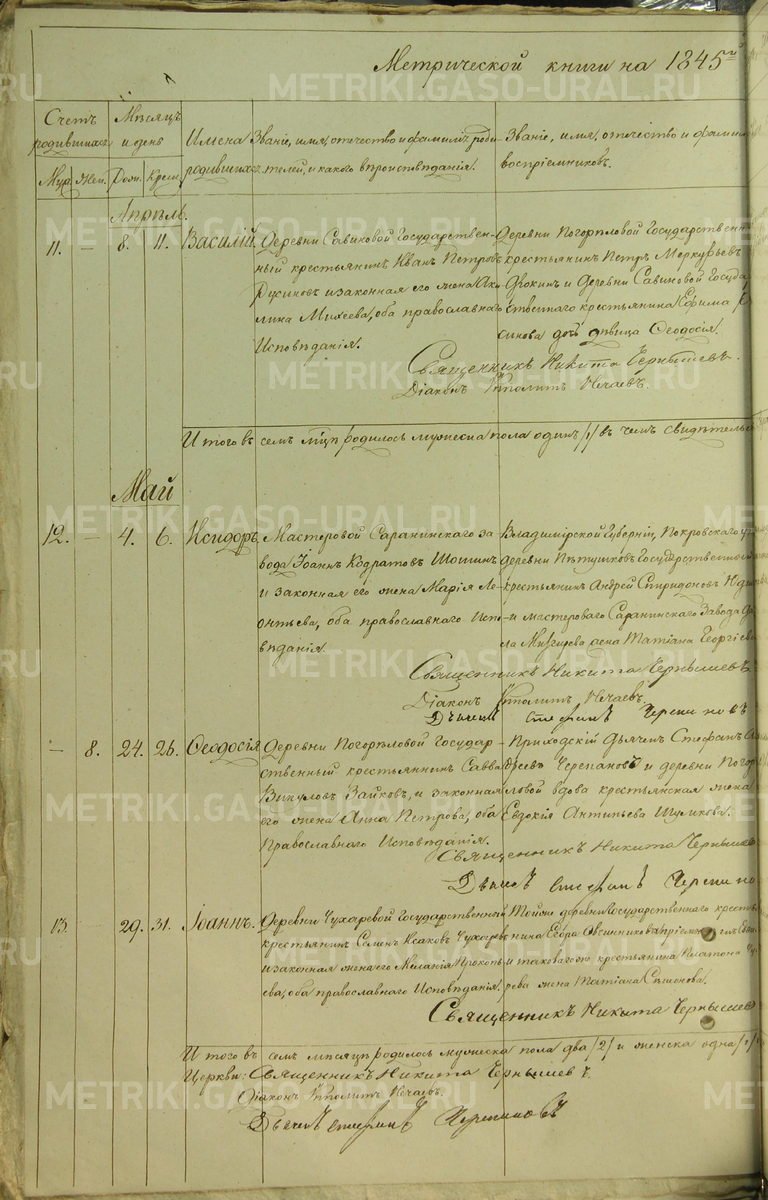 Метрической книги на 1845й
Счетъ родившихся
Мѣсяцъ и день
Имена родившихся
Званіе, имя, отечество и фамилія роди-
телей, и какого вѣроисповѣданія.
Званіе, имя, отечество и фамилія
воспріемниковъ.
Муж. Жен. Рож. Крещ.
Апрѣль.
11. — 8. 11. Василій.
Деревни Савиновой Государствен-
ный крестьянинъ Иванъ Петровъ
и законная его жена Аку-
лина Михеева, оба православнаго
Исповѣданія.
Деревни Погорѣловой Государственный
крестьянинъ Петръ Меркурьевъ
Фокинъ и Деревни Савиновой Госуда
рственнаго крестьянина Ефима
дочь дѣвица Ѳеодосія.
Священникъ Никита Чернышевъ.
Діаконъ Ипполитъ Нечаевъ.
Итого въ семъ мцѣ родилось мужеска пола одинъ /1/ въ чемъ свидѣтельс
Май
12. — 4. 6. Исидоръ.
Мастеровой Саранинскаго за
вода Іоаннъ Кодратовъ Шошинъ
и законная его жена Марія Ле-
онтьева, оба православнаго Испо-
вѣданія.
Владимірской Губерніи, Покровскаго
деревни Пѣтушковъ Государственной
крестьянинъ Андрей Спиридоновъ
и мастероваго Саранинскаго Завода
жена Татіана Георгіева
Священникъ Никита Чернышевъ
Діаконъ Ипполитъ Нечаевъ.
Дьячекъ Стефанъ Черепановъ
— 8. 24. 26. Ѳеодосія
Деревни Погорѣловой Государ-
ственный крестьянинъ Савва
Викуловъ Зайковъ, и законная
его жена Анна Петрова, оба
Православнаго Исповѣданія.
Приходскій Дьячекъ Стефанъ
Черепановъ и деревни Погорѣ
ловой вдова крестьянская жена
Евдокія Антипьева Шуликова.
Священникъ Никита Чернышевъ
Дьячекъ Стефанъ Черепано
13. — 29. 31. Іоаннъ.
Деревни Чухаревой Государственный
крестьянинъ Семенъ Исаковъ Чухаревъ
и законная жена его Меланія Прокопь-
ева, оба православнаго Исповѣданія.
Тойже деревни Государственнаго кресть
нина Егора Овсянникова
и таковагоже крестьянина Платона Чу
рева жена Татіана Симонова.
Священникъ Никита Чернышев
Итого въ семъ мѣсяцѣ родилось мужеска пола два /2/ и женска одна /1/
Церкви: Священникъ Никита Чернышевъ.
Діаконъ Ипполитъ Нечаевъ.
Дьячекъ Стефанъ Черепановъ
METRIKI.GASO-URAL.RU